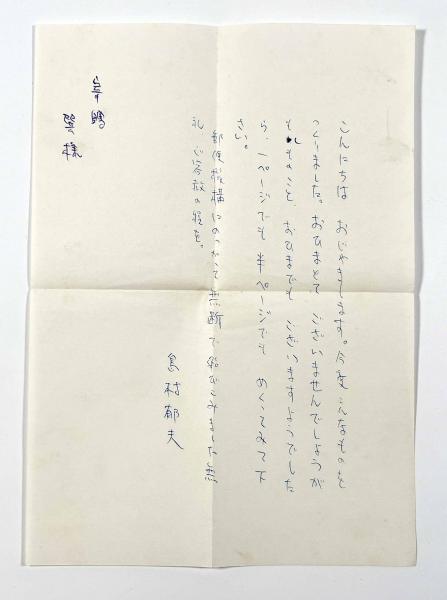 こんにちは おじゃまします。今度こんなものを
つくりました。おひまとて ございませんでしょうが
もしものこと、おひまでも ございますようでした
ら、一ページでも 半ページでも めくってみて下
さい。
郵便機構にのっかって 無断で 飛びこみました無
礼 ご容赦の程を。
島村郁夫
様